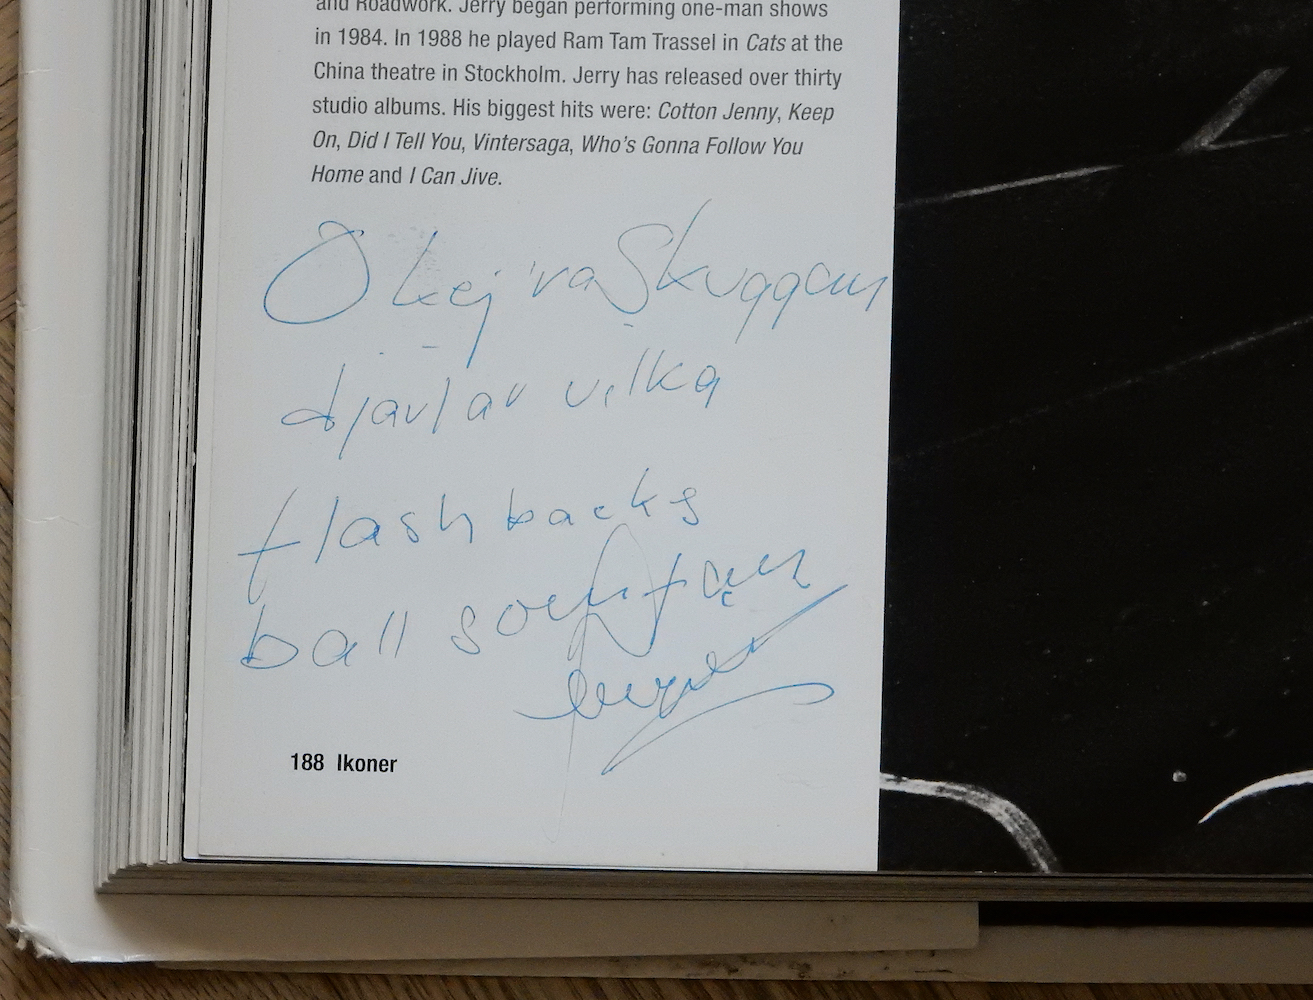 and Roadwork. Jerry began performing one-man shows
in 1984. In 1988 he played Ram Tam Trassel in Cats at the
China theatre in Stockholm. Jerry has released over thirty
studio albums. His biggest hits were: Cotton Jenny, Keep
On, Did I Tell You, Vintersaga, Who's Gonna Follow You
Home and I Can Jive.
Okej
djavlar vilka
flashbacks
ball
188 Ikoner